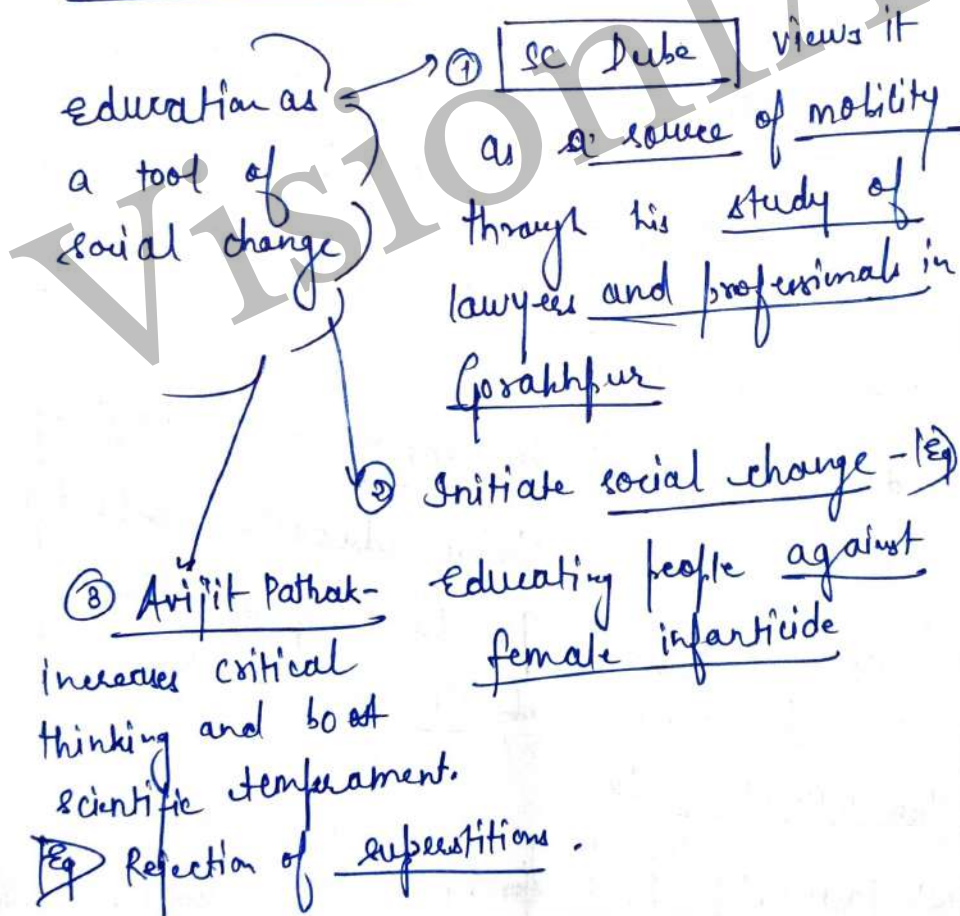 education as
a tool of
social change
① SC Dube views it
as a source of mobility
through his study of
lawyers and professionals in
Gorakhpur
② Initiate social change - Eg
Educating people against
female infanticide
③ Avijit Pathak-
increases critical
thinking and boost
scientific temperament.
Eg Rejection of superstitions.
VisionIA